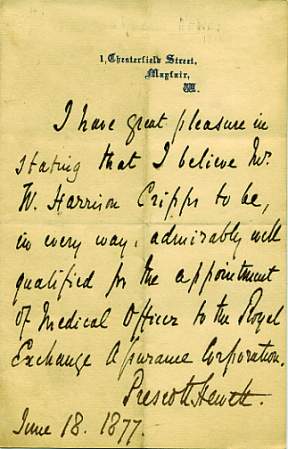 1, Chesterfield Street,
Mayfair,
W.
I have great pleasure in
stating that I believe Mr.
W. Harrison Cripps to be,
in every way, admirably well
qualified for the appointment
of Medical Officer to the Royal
Exchange Assurance Corporation.
Prescott Hewett.
June 18. 1877.